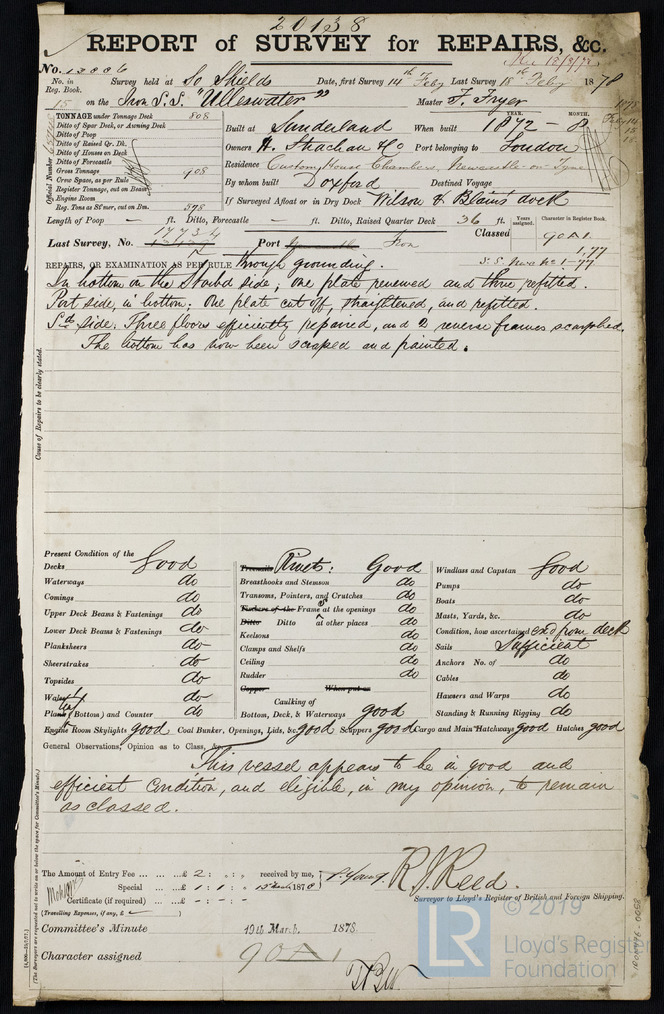 20138
REPORT of SURVEY for REPAIRS, &c.
No. in Reg. Book. Survey held at So Shields Date, first Survey 14th Feby Last Survey 18th Feby 1878
15 on the Iron S.S. "Ulleswater" Master F. Fryer
TONNAGE under Tonnage Deck 808
Ditto of Spar Deck, or Awning Deck
Ditto of Poop
Ditto of Raised Qr. Dk.
Ditto of Houses on Deck
Ditto of Forecastle
Gross Tonnage 908
Crew Space, as per Rule
Register Tonnage, cut on Beam
Engine Room
Reg. Tons as Stmer, cut on Bm. 578
Official Number
Built at Sunderland When built YEAR. 1872 MONTH. 8
Owners H. Strachan & Co Port belonging to London
Residence Custom House Chambers, Newcastle-on-Tyne
By whom built Doxford Destined Voyage
If Surveyed Afloat or in Dry Dock Wilson & Blain's dock
Length of Poop — ft. Ditto, Forecastle — ft. Ditto, Raised Quarter Deck 36 ft. Years assigned. Character in Register Book.
Last Survey, No. 17734 Port Iron Classed 90A1.
1,77
S.S. No 1-77
REPAIRS, OR EXAMINATION AS PER RULE through grounding.
In bottom on the Starbd side; one plate renewed and three refitted.
Port side, in bottom: One plate cut off, straightened, and refitted.
Sd side. Three floors efficiently repaired, and 2 reverse frames scarphed.
The bottom has now been scraped and painted.
Cause of Repairs to be clearly stated.
Present Condition of the
Decks Good
Waterways do
Comings do
Upper Deck Beams & Fastenings do
Lower Deck Beams & Fastenings do
Planksheers do
Sheerstrakes do
Topsides do
Wales do
Plank (Bottom) and Counter do
Treenails Rivets: Good
Breasthooks and Stemson do
Transoms, Pointers, and Crutches do
Timbers of the Frame at the openings do
Ditto Ditto at other places do
Keelsons do
Clamps and Shelfs do
Ceiling do
Rudder do
Copper When put on
Caulking of
Bottom, Deck, & Waterways good
Windlass and Capstan Good
Pumps do
Boats do
Masts, Yards, &c. do
Condition, how ascertained exd from deck
Sails Sufficient
Anchors No. of do
Cables do
Hawsers and Warps do
Standing & Running Rigging do
Engine Room Skylights good Coal Bunker, Openings, Lids, &c. good Scuppers good Cargo and Main Hatchways good Hatches good
General Observations, Opinion as to Class, &c.
This vessel appears to be in good and
efficient condition, and eligible, in my opinion, to remain
as classed.
The Amount of Entry Fee £ 2 : : received by me,
Special £ 1 : 1 : 15 March 1878
Certificate (if required) £ - : - : -
(Travelling Expenses, if any, £ )
R. J. Reed.
Surveyor to Lloyd's Register of British and Foreign Shipping.
Committee's Minute 19th March 1878.
Character assigned 90A1
(The Surveyors are requested not to write on or below the space for Committee's Minute.)
LR © 2019
Lloyd's Register
Foundation